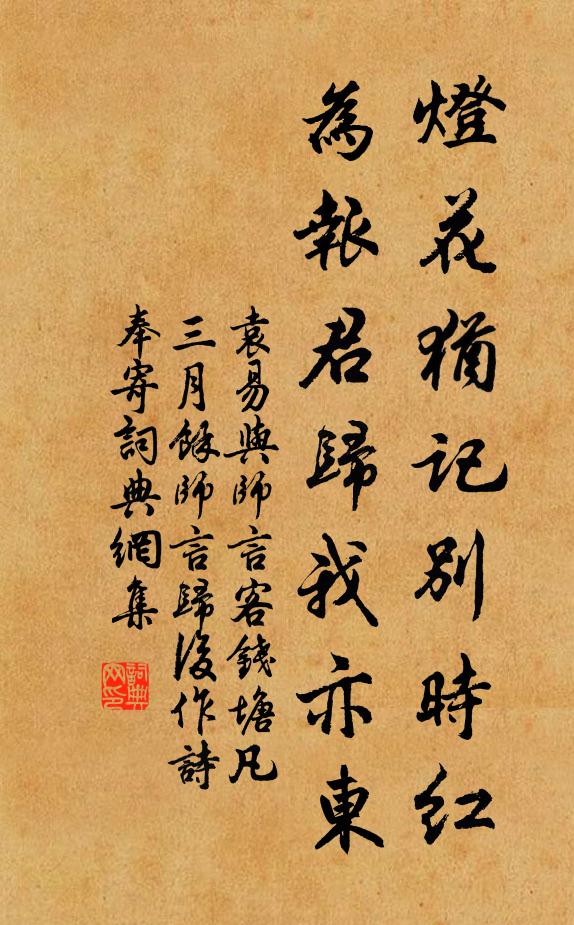 燈花猶記別時紅
為報君歸我亦東
袁易與師言客錢塘凡
三月餘師言歸後作詩
奉寄詞典網集
詞典网印